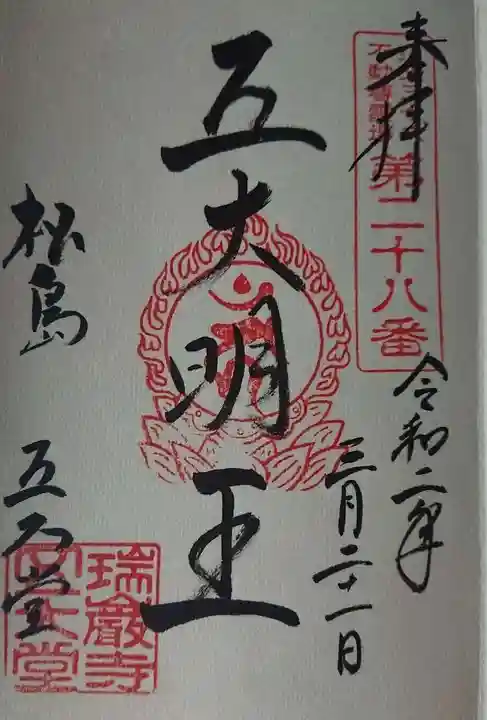 奉拝
第二十八番
令和二年
三月二十一日
五大明王
松島 五大堂
瑞巌寺
五大堂